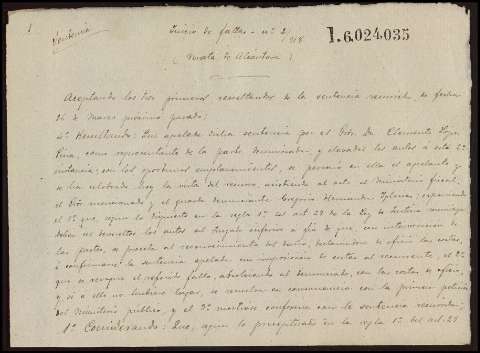 1
Sentencia
Juicio de faltas - nº 2/918
1.6.024.035
(Brozas de Alcántara)
Aceptando los dos primeros resultandos de la sentencia recurrida, de fecha
26 de Marzo próximo pasado;
4º Resultando: Que apelada dicha sentencia por el Dor. Dn Clemente
como representante de la parte denunciadora y elevados los autos á esta 2ª
instancia, con los oportunos emplazamientos, se personó en ella el apelante y
se ha celebrado hoy la vista del recurso, asistiendo al acto el Ministerio fiscal,
el Dor mencionado y el guarda denunciante Gregorio Hernandez Iglesias; exponiendo
el 1º que, según lo dispuesto en la regla 1ª del art 28 de la Ley de Justicia municipal
deben ser devueltos los autos al Juzgado inferior á fin de que, con intervención de
las partes, se proceda al reconocimiento del daño, declarándose de oficio las costas,
ó confirmarse la sentencia apelada con imposición de costas al recurrente, el 2º
que se revoque el referido fallo, absolviendo al denunciado, con las costas de oficio,
y si á ello no hubiere lugar, se resuelva en consonancia con la primera petición
del Ministerio público, y el 3º manifestó conforme con la sentencia recurrida;
1º Considerando: Que, según lo preceptuado en la regla 1ª del art. 28